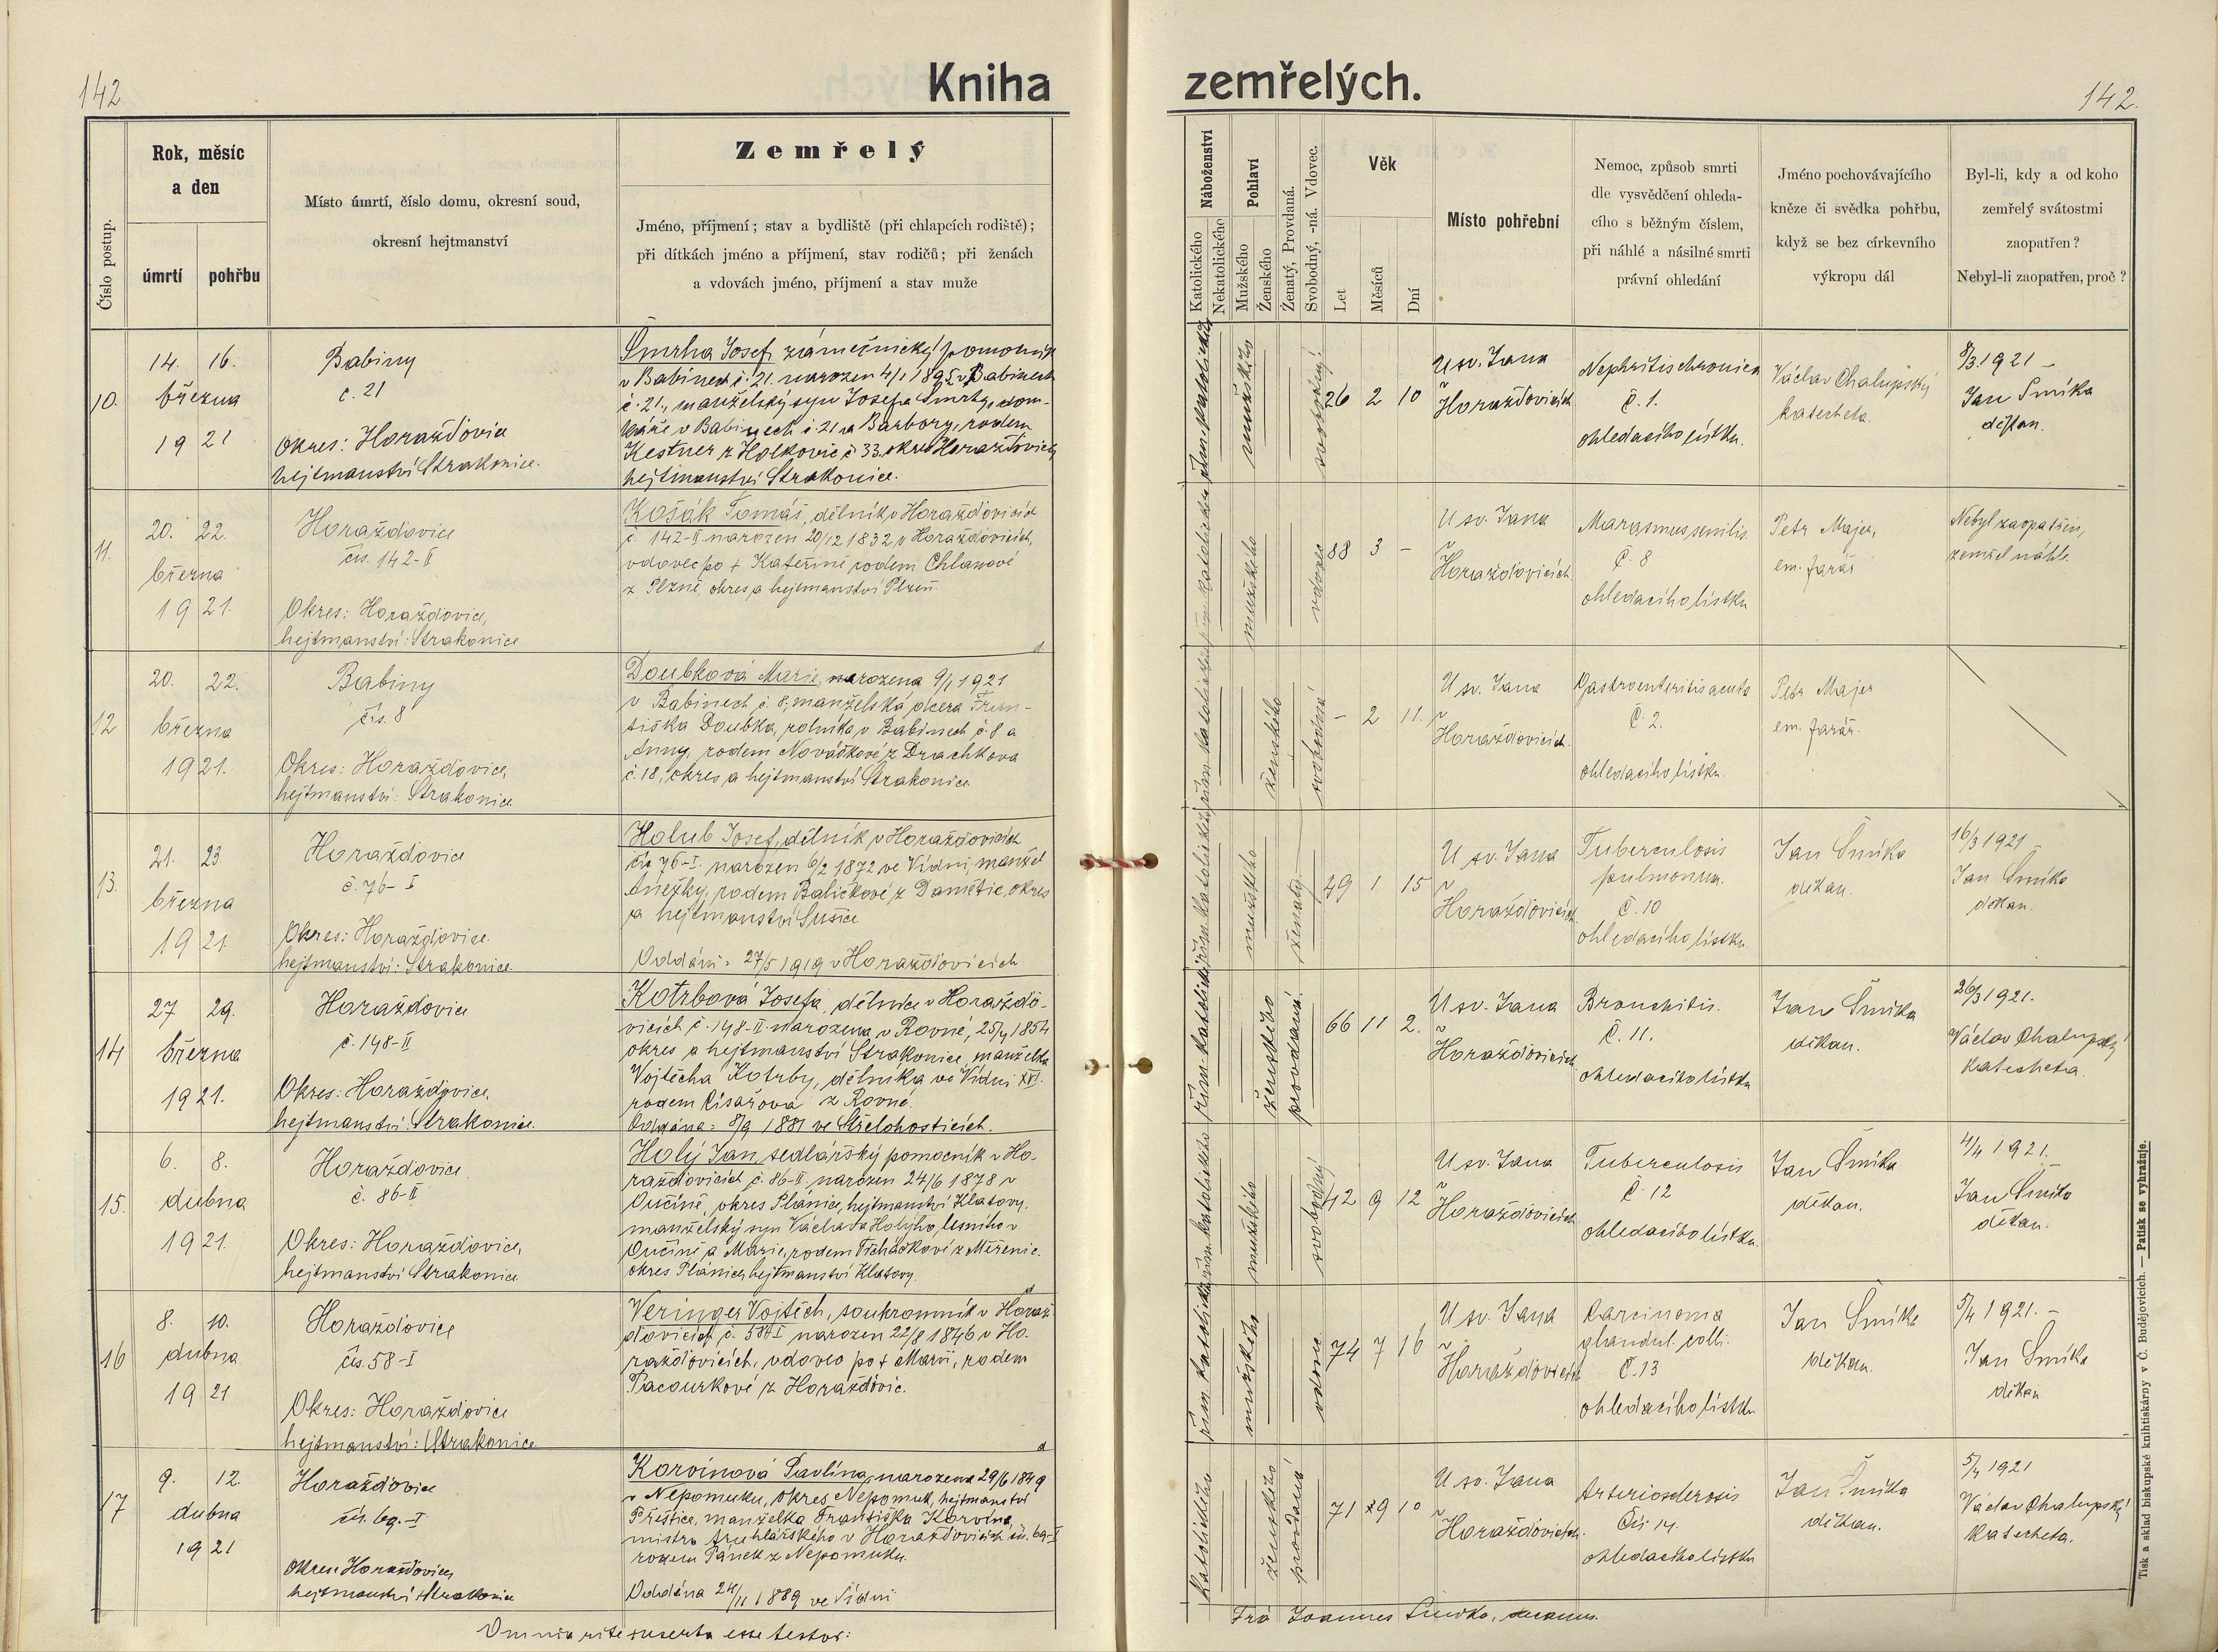 142
Kniha
zemřelých.
142.
Číslo postup.
Rok, měsíc
a den
úmrtí
pohřbu
Místo úmrtí, číslo domu, okresní soud,
okresní hejtmanství
Zemřelý
Jméno, příjmení; stav a bydliště (při chlapcích rodiště);
při dítkách jméno a příjmení, stav rodičů; při ženách
a vdovách jméno, příjmení a stav muže
Náboženství
Katolického
Nekatolického
Pohlaví
Mužského
Ženského
Ženatý, Provdaná.
Svobodný, -ná. Vdovec.
Věk
Let
Měsíců
Dní
Místo pohřební
Nemoc, způsob smrti
dle vysvědčení ohleda-
cího s běžným číslem,
při náhlé a násilné smrti
právní ohledání
Jméno pochovávajícího
kněze či svědka pohřbu,
když se bez církevního
výkropu dál
Byl-li, kdy a od koho
zemřelý svátostmi
zaopatřen?
Nebyl-li zaopatřen, proč?
10.
14. 16.
března
19 21
Babiny
č. 21
Okres: Horažďovice
hejtmanství Strakonice.
Šmrha Josef, zámečnický pomocník
v Babinech č. 21. narozen 4/1 1895 v Babinech
č. 21., manželský syn Josefa Šmrhy, dom-
káře v Babinech č. 21 a Barbory, rodem
Kestner z č 33. okres Horažďovice
hejtmanství Strakonice.
mužského
svobodný
26 2 10
U sv. Jana
v
Horažďovicích
Nephritis chronica
Č. 1.
ohledacího lístku.
Václav Chalupský
katecheta.
8/3 1921 –
Jan Šmíka
děkan.
11.
20. 22.
března
19 21.
Horažďovice
čís. 142-II
Okres: Horažďovice,
hejtmanství: Strakonice
Košák Tomáš, dělník v Horažďovicích
č 142-II narozen 20/12 1832 v Horažďovicích,
vdovec po + Kateřině rodem Chlanové
z Plzně, okres a hejtmanství Plzeň.
mužského
vdovec
88 3 –
U sv. Jana
v
Horažďovicích
Marasmus senilis.
Č. 8
ohledacího lístku
Petr Majer,
em. farář
Nebyl zaopatřen,
zemřel náhle.
12
20. 22.
března
19 21.
Babiny
čís. 8
Okres: Horažďovice,
hejtmanství: Strakonice
Doubková Marie, narozena 9/1 1921
v Babinech č. 8, manželská dcera Fran-
tiška Doubka, rolníka v Babinech č. 8 a
Anny, rodem Nováčkové z Drachkova
č. 18, okres a hejtmanství Strakonice.
ženského
svobodná
– 2 11.
U sv. Jana
v
Horažďovicích.
Gastroenteritis acuta
Č. 2.
ohledacího lístku.
Petr Majer
em. farář.
13.
21. 23.
března
19 21
Horažďovice
č. 76-I
Okres: Horažďovice.
hejtmanství: Strakonice.
Holub Josef, dělník v Horažďovicích
čís 76-I. narozen 6/2 1872 ve Vídni, manžel
Anežky, rodem Baličkové z Damětic, okres
a hejtmanství Sušice
Oddáni: 27/5 1919 v Horažďovicích
mužského
ženatý
49 1 15
U sv. Jana
v
Horažďovicích
Tuberculosis
pulmonum.
Č. 10
ohledacího lístku.
Jan Šmíka
děkan.
16/3 1921
Jan Šmíka
děkan.
14
27 29.
března
19 21.
Horažďovice
č. 148-II
Okres: Horažďovice,
hejtmanství: Strakonice.
Kotrbová Josefa, dělnice v Horažďo-
vicích č. 148-II. narozena v Rovné, 25/4 1854
okres a hejtmanství Strakonice, manželka
Vojtěcha Kotrby, dělníka ve Vídni XVI.
rodem Císařová z Rovné.
Oddána: 8/9 1881 ve Střelohosticích.
řím. katolického
ženského
provdaná.
66 11 2.
U sv. Jana
v
Horažďovicích
Bronchitis.
Č. 11.
ohledacího lístku
Jan Šmíka
děkan.
26/3 1921.
Václav Chalupský
katecheta.
15.
6. 8.
dubna
19 21.
Horažďovice
č. 86-II
Okres: Horažďovice,
hejtmanství Strakonice
Holý Jan, sedlářský pomocník v Ho-
ražďovicích č. 86-II. narozen 24/6 1878 v
Onučině, okres Plánice, hejtmanství Klatovy.
manželský syn Václava Holýho, lesního v
Onučině a Marie, rodem z Měřenic.
okres Plánice, hejtmanství Klatovy.
mužského
svobodný
42 9 12
U sv. Jana
v
Horažďovicích
Tuberculosis
Č. 12
ohledacího lístku.
Jan Šmíka
děkan.
4/4 1921.
Jan Šmíka
děkan.
16
8. 10.
dubna
19 21
Horažďovice
čís. 58-I
Okres: Horažďovice
hejtmanství: Strakonice
Veringer Vojtěch, soukromník v Horaž-
ďovicích č. 58-I narozen 22/8 1846 v Ho-
ražďovicích, vdovec po + Marii, rodem
Pacourkové z Horažďovic.
řím. katolického
mužského
vdovec
74 7 16
U sv. Jana
v
Horažďovicích
Carcinoma
glandul. colli.
Č. 13
ohledacího lístku
Jan Šmíka
děkan.
5/4 1921. –
Jan Šmíka
děkan
17
9. 12.
dubna
19 21
Horažďovice
čís. 69.-I
Okres Horažďovice,
hejtmanství Strakonice
Korvínová Pavlína, narozena 29/6 1849
v Nepomuku, okres Nepomuk, hejtmanství
Přeštice, manželka Františka Korvína,
mistra truhlářského v Horažďovicích čís. 69-I
rodem Pánek z Nepomuku.
Oddána 24/11 1889 ve Vídni
katolického
ženského
provdaná
71 9 10
U sv. Jana
v
Horažďovicích.
Arteriosclerosis
Čís 14.
ohledacího lístku
Jan Šmíka
děkan.
5/4 1921
Václav Chalupský
katecheta.
Omnia rite inserta esse testor:
Joannes Šmíka, decanus.
Tisk a sklad biskupské knihtiskárny v Č. Budějovicích. — Patisk se vyhražuje.